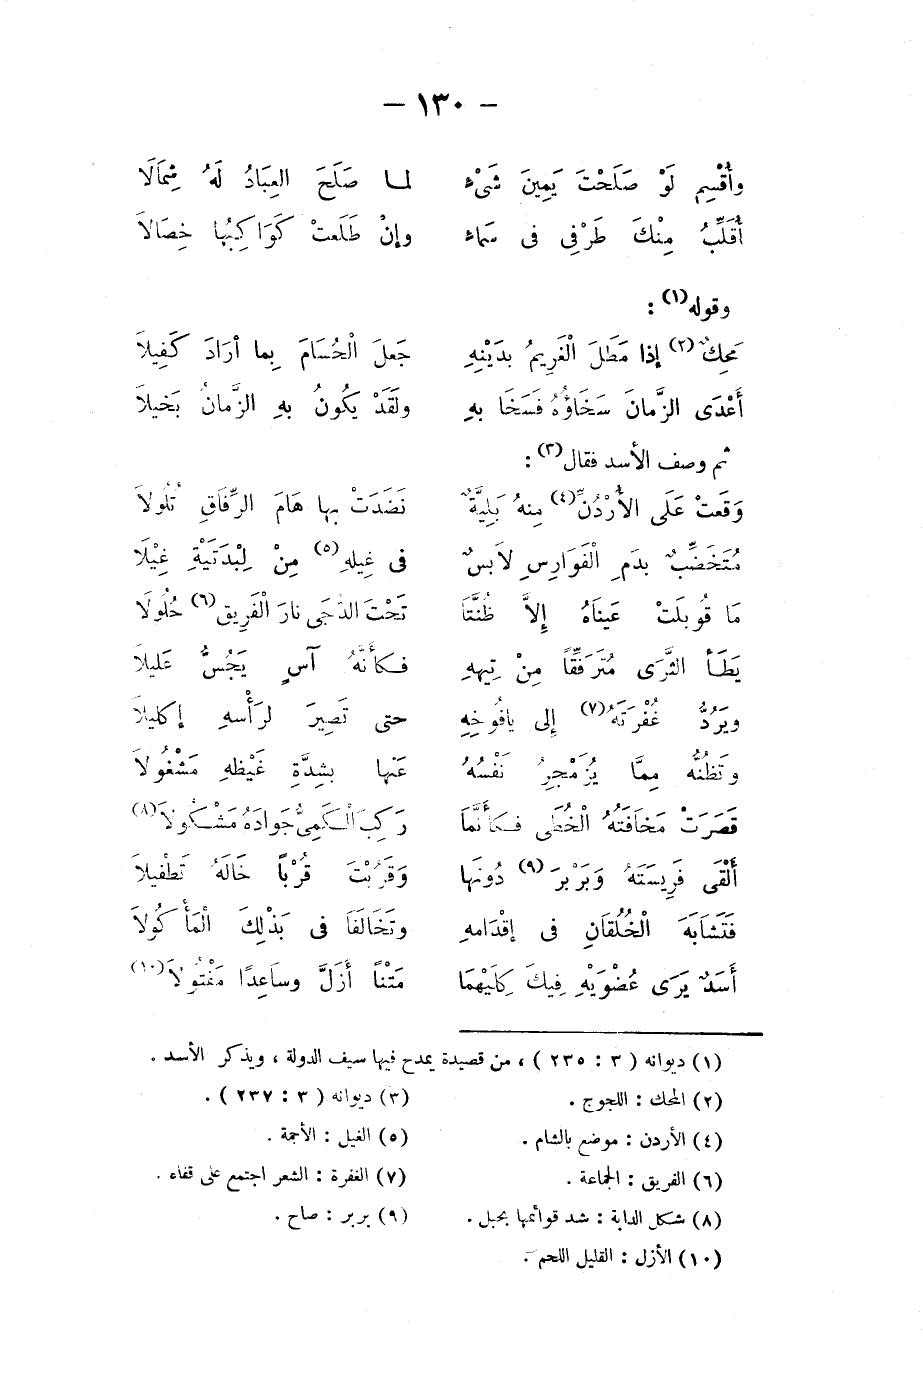 — ١٣٠ —
وأُقْسِم لَوْ صَلَحْتَ يَمِينَ شَىْءٍ لما صَلَحَ العِبَادُ لَهُ شِمَالَا
أُقَلِّبُ مِنْكَ طَرْفِى فى سَماء وإنْ طَلَعتْ كَوَاكِبُها خِصَالاَ
وقوله(١) :
مَحِكٌ(٢) إذا مَطَلَ الْغَرِيمُ بدَيْنِهِ جَعلَ الْحُسَامَ بِما أرَادَ كَفِيلاَ
أَعْدَى الزَّمانَ سَخَاؤُهُ فَسَخَا بهِ ولَقَدْ يَكُونُ بهِ الزَّمانُ بَخيلاَ
ثم وصف الأسد فقال(٣) :
وَقَعتْ عَلَى الأُرْدُنِّ(٤) مِنهُ بَلِيَّةٌ نَضَدَتْ بها هَامَ الرِّفَاقِ تُلُولاَ
مُتَخَضِّبٌ بدَمِ الْفَوَارِسِ لاَبسٌ فى غِيلهِ(٥) مِنْ لِبْدَتَيْهِ غِيْلَا
مَا قُوبلَتْ عَينَاهُ إِلاَّ ظُنَّتَا تَحْتَ الدُّجَى نارَ الْفَرِيق(٦) حُلُولَا
يَطَأ الثَّرَى مُتَرَفِّقاً مِنْ تِيههِ فكأنَّهُ آسٍ يَجُسُّ عَليلاَ
ويَرُدُّ غُفْرَتَهُ(٧) إِلى يافُوخِهِ حتى تَصِيرَ لرَأْسهِ إكليلاَ
وتَظُنُّه مِمَّا يُزَمْجِرُ نَفْسُهُ عَنها بشِدَّةِ غَيْظهِ مَشْغُولاَ
قَصَرَتْ مَخافَتُهُ الْخُطَى فكأنَّمَا رَكِبَ الكَمِىُّ جَوَادَهُ مَشْكُولاَ(٨)
أَلْقَى فَرِيسَتَهُ وَبَرْبَرَ(٩) دُونَها وَقَرُبْتَ قُرْباً خَالَهُ تَطْفيلاَ
فَتَشَابَهَ الْخُلُقَانِ فى إقْدَامهِ وتَخَالَفَا فى بَذْلِكَ الْمَأكُولاَ
أَسَدٌ يَرَى عُضْوَيْهِ فِيكَ كِلَيْهمَا مَتْناً أَزَلَّ وساَعِدًا مَفْتُولاَ(١٠)
(١) ديوانه ( ٣ : ٢٣٥ ) ، من قصيدة يمدح فيها سيف الدولة ، ويذكر الأسد .
(٢) المحك : اللجوج . (٣) ديوانه ( ٣ : ٢٣٧ ) .
(٤) الأردن : موضع بالشام . (٥) الغيل : الأجمة .
(٦) الفريق : الجماعة . (٧) الغفرة : الشعر اجتمع على قفاء .
(٨) شكل الدابة : شد قوائمها بحبل . (٩) بربر : صاح .
(١٠) الأزل : القليل اللحم .